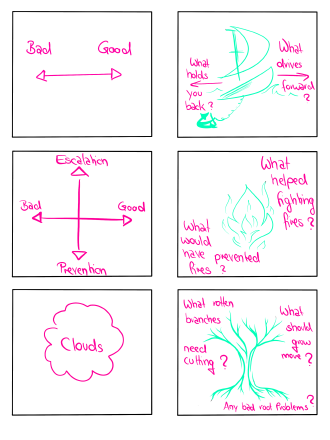 Bad Good
What
holds
you
back?
What
drives
forward
?
Escalation
Bad Good
Prevention
What
helped
fighting
fires?
What
would
have prevented
fires?
Clouds
What rotten
branches
need
cutting?
What
should
grow
more?
Any bad root problems?